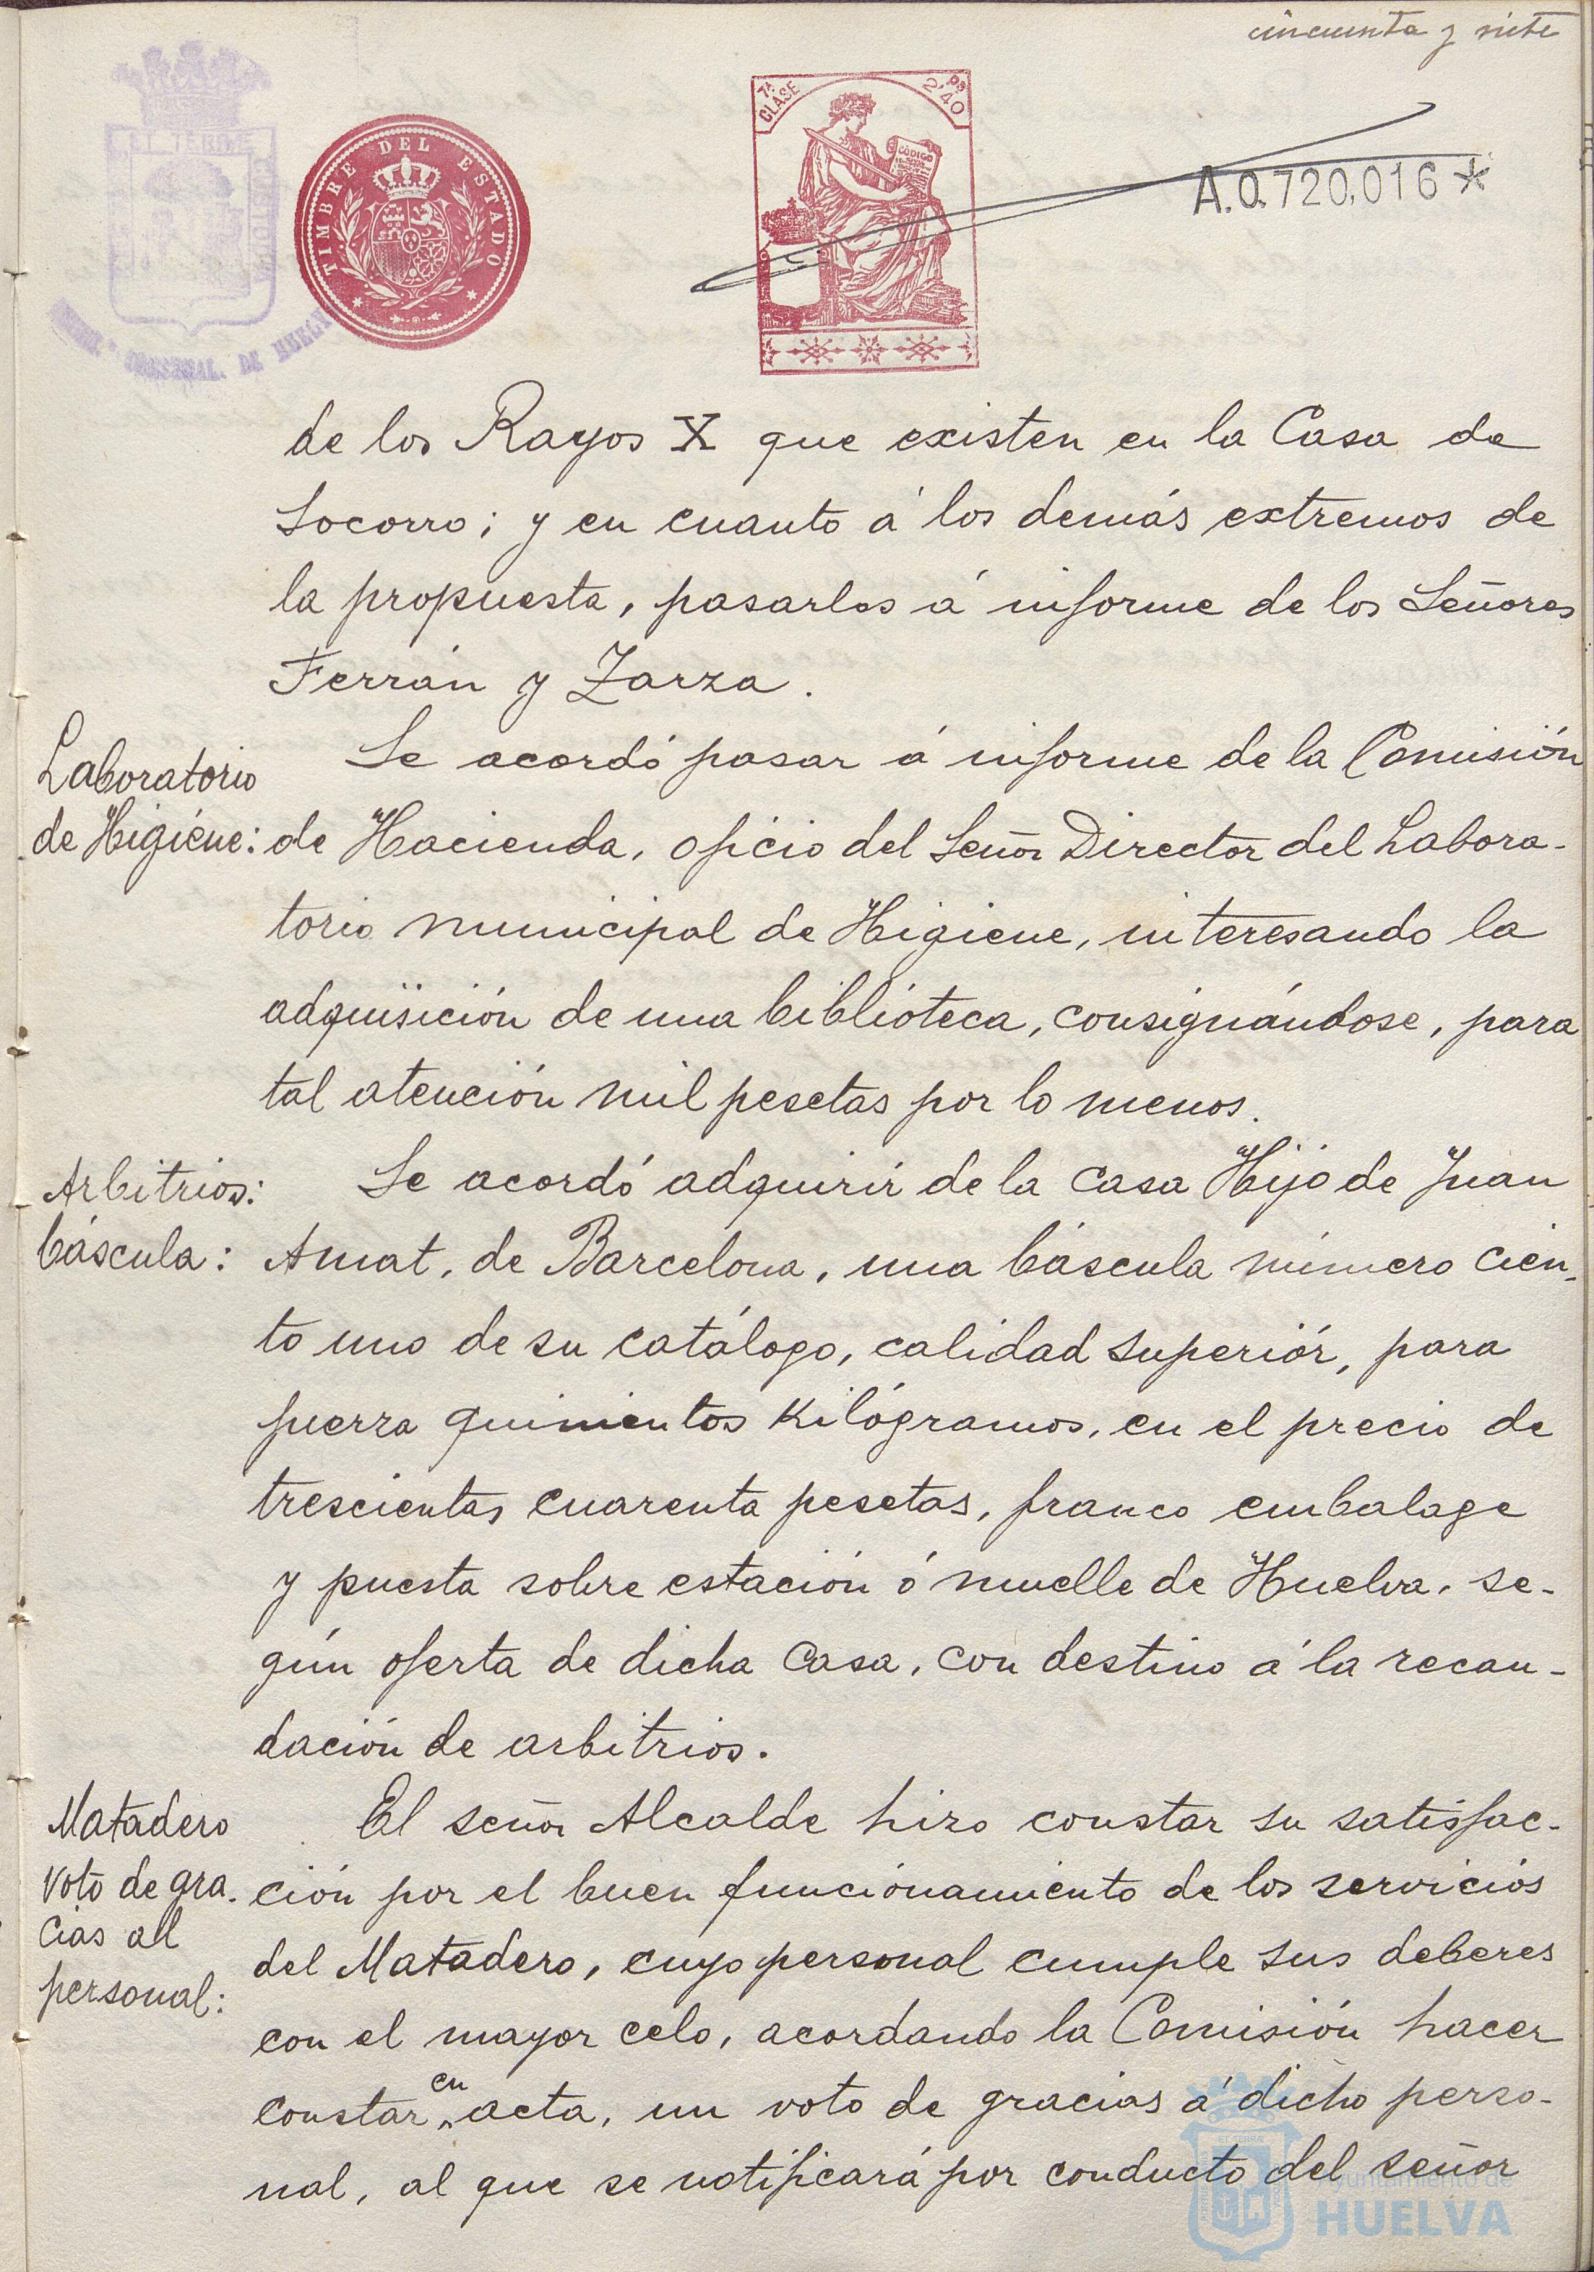 cincuenta y siete
TIMBRE DEL ESTADO
7ª CLASE
2'40 Ps
CÓDIGO
A.0.720,016*
de los Rayos X que existen en la Casa de
Socorro; y en cuanto á los demás extremos de
la propuesta, pasarlos á informe de los Señores
Ferrán y Zarza.
Laboratorio
de Higiéne:
Se acordó pasar á informe de la Comisión
de Hacienda, oficio del Señor Director del Labora-
torio municipal de Higiene, interesando la
adquisición de una biblióteca, consignándose, para
tal atención mil pesetas por lo menos.
Arbitrios:
báscula:
Se acordó adquirir de la casa Hijo de Juan
Amat, de Barcelona, una báscula número cien-
to uno de su catálogo, calidad superiór, para
fuerza quinientos Kilógramos, en el precio de
trescientas cuarenta pesetas, franco embalage
y puesta sobre estación ó muelle de Huelva, se-
gún oferta de dicha Casa, con destino á la recau-
dación de arbitrios.
Matadero
Voto de gra-
cias al
personal:
El señor Alcalde hizo constar su satisfac-
ción por el buen funcionamiento de los servicios
del Matadero, cuyo personal cumple sus deberes
con el mayor celo, acordando la Comisión hacer
constar en acta, un voto de gracias á dicho perso-
nal, al que se notificará por conducto del señor
Ayuntamiento de
HUELVA